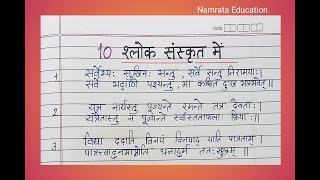 Namrata Education
DATE
10 श्लोक संस्कृत में
1. सर्वेभ्यः सुखिनः सन्तु, सर्वे सन्तु निरामयाः।
सर्वे भद्राणि पश्यन्तु, मा कश्चित दुःख भाग्भवेत्॥
2. यत्र नार्यस्तु पूज्यन्ते रमन्ते तत्र देवताः।
यत्रतास्तु न पूज्यन्ते क्रियाः॥
3. विद्या ददाति विनयं विनयाद् याति पात्रताम्।
ततःसुखम्॥